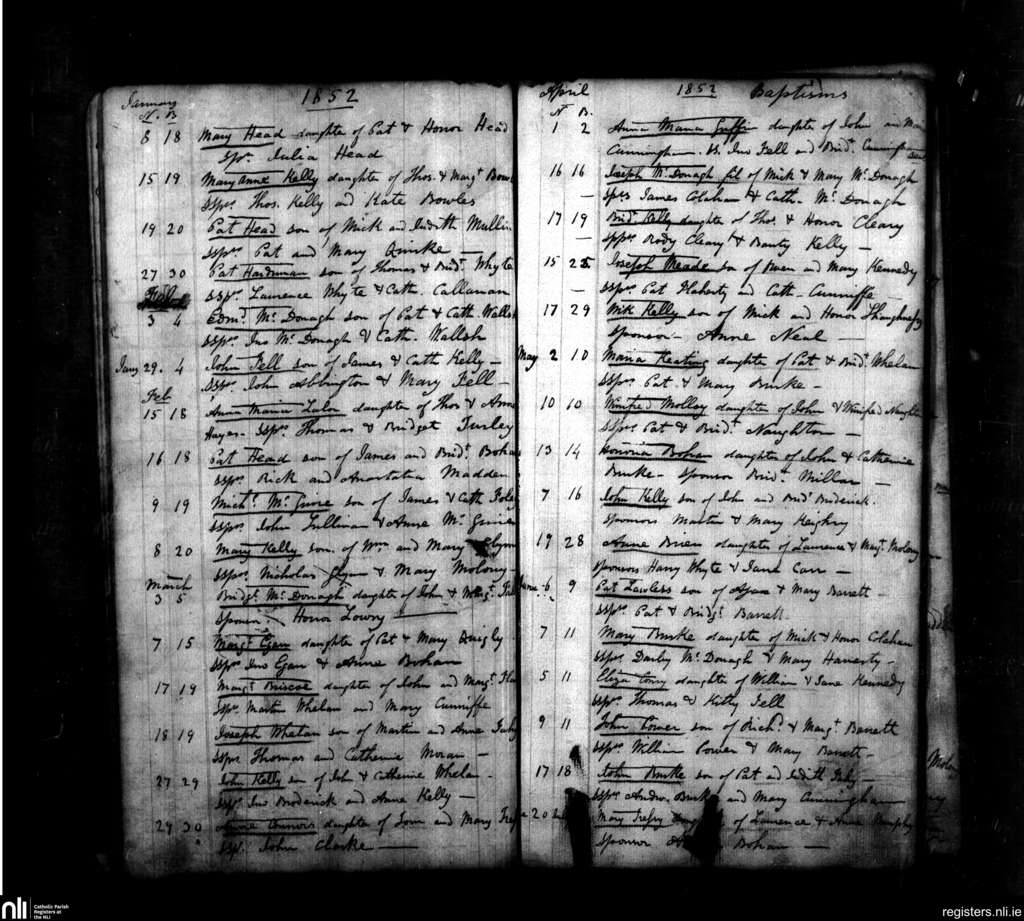 January 1852
N. B
8 18 Mary Head daughter of Pat & Honor Head
Spr. Julia Head
15 19 Mary Anne Kelly daughter of Thos. & Margt.
SSprs. Thos. Kelly and Kate Bowles
19 20 Pat Head son of Mick and Judith Mullin
SSprs. Pat and Mary Quirke —
27 30 Pat Hardiman son of Thomas & Bridt. Whyte
SSprs. Laurence Whyte & Cath. Callanan
Feb
3 4 Edmd. Mc Donagh son of Pat & Cath. Walsh
SSprs. Jno Mc Donagh & Cath. Wallsh
Jany 29. 4 John Fell son of James & Cath Kelly —
SSprs. John Abbington & Mary Fell —
Feb
15 18 Anna Maria Lalor daughter of Thos & Anne
Hayes. SSprs. Thomas & Bridget Turley
16 18 Pat Head son of James and Bridt.
SSprs. Rick and Anastatia Madden
9 19 Michl. Mc son of James & Cath
SSprs. John Sullivan & Anne Mc
8 20 Mary Kelly son of Wm and Mary Glynn
SSprs. Nicholas Glynn & Mary Molony
March
3 5 Bridgt. Mc Donagh daughter of John & Margt.
Sponsr. Honor Lowry —
7 15 Margt. Egan daughter of Pat & Mary Quigly
SSprs Jno Egan & Anne Bohan
17 19 Margt. Briscoe daughter of John and Margt.
Sprs. Martin Whelan and Mary Cunniffe
18 19 Joseph Whelan son of Martin and Anne
SSprs Thomas and Catherine Moran —
27 29 John Kelly son of John & Catherine Whelan —
SSprs. Jno Broderick and Anne Kelly —
29 30 Anne Connors daughter of and Mary
SSpr. John Clarke —
April 1852 Baptisms
N B.
1 2 Anna Maria Griffin daughter of John and
Cunningham. SS. Jno Fell and Bridt. Cunningham
16 16 Joseph Mc Donagh fil of Mick & Mary Mc Donagh
Sprs James Colahan & Cath. Mc Donagh
17 19 Bridt. Kelly daughter of Thos. & Honor Cleary
— Spprs. Rody Cleary & Kelly —
15 25 Joseph Meade son of Owen and Mary Kennedy
— SSprs. Pat Flaherty and Cath. Cunniffe
17 29 Mick Kelly son of Mick and Honor
Sponsor — Anne Neal —
May 2 10 Maria Keating daughter of Pat & Bridt. Whelan
SSprs. Pat & Mary Burke —
10 10 Winifred Molloy daughter of John & Winifred Naughton
SSprs Pat & Bridt. Naughton —
13 14 Honoria Bohan daughter of John & Catherine
Burke — Sponsor Bridt. Millar —
7 16 John Kelly son of John and Bridt Broderick.
Sponsors Martin & Mary Keighry
19 28 Anne Brien daughter of Laurence & Margt. Molony
Sponsors Harry Whyte & Jane Carr —
June 6 9 Pat Lawless son of & Mary Barrett —
SSprs. Pat & Bridgt Barrett
7 11 Mary Burke daughter of Mick & Honor Colahan
SSprs. Darby Mc Donagh & Mary Haverty —
5 11 Eliza daughter of William & Jane Kennedy
SSprs. Thomas & Kitty Fell
9 11 John Power son of Richd. & Margt. Barrett
SSprs. William Power & Mary Barrett —
17 18 John Burke son of Pat and Judith —
SSprs. Andw. Burke and Mary Cunningham
20 Mary daughter of Laurence & Anne
Sponsor Bohan —
nli
Catholic Parish
Registers at
the NLI
registers.nli.ie